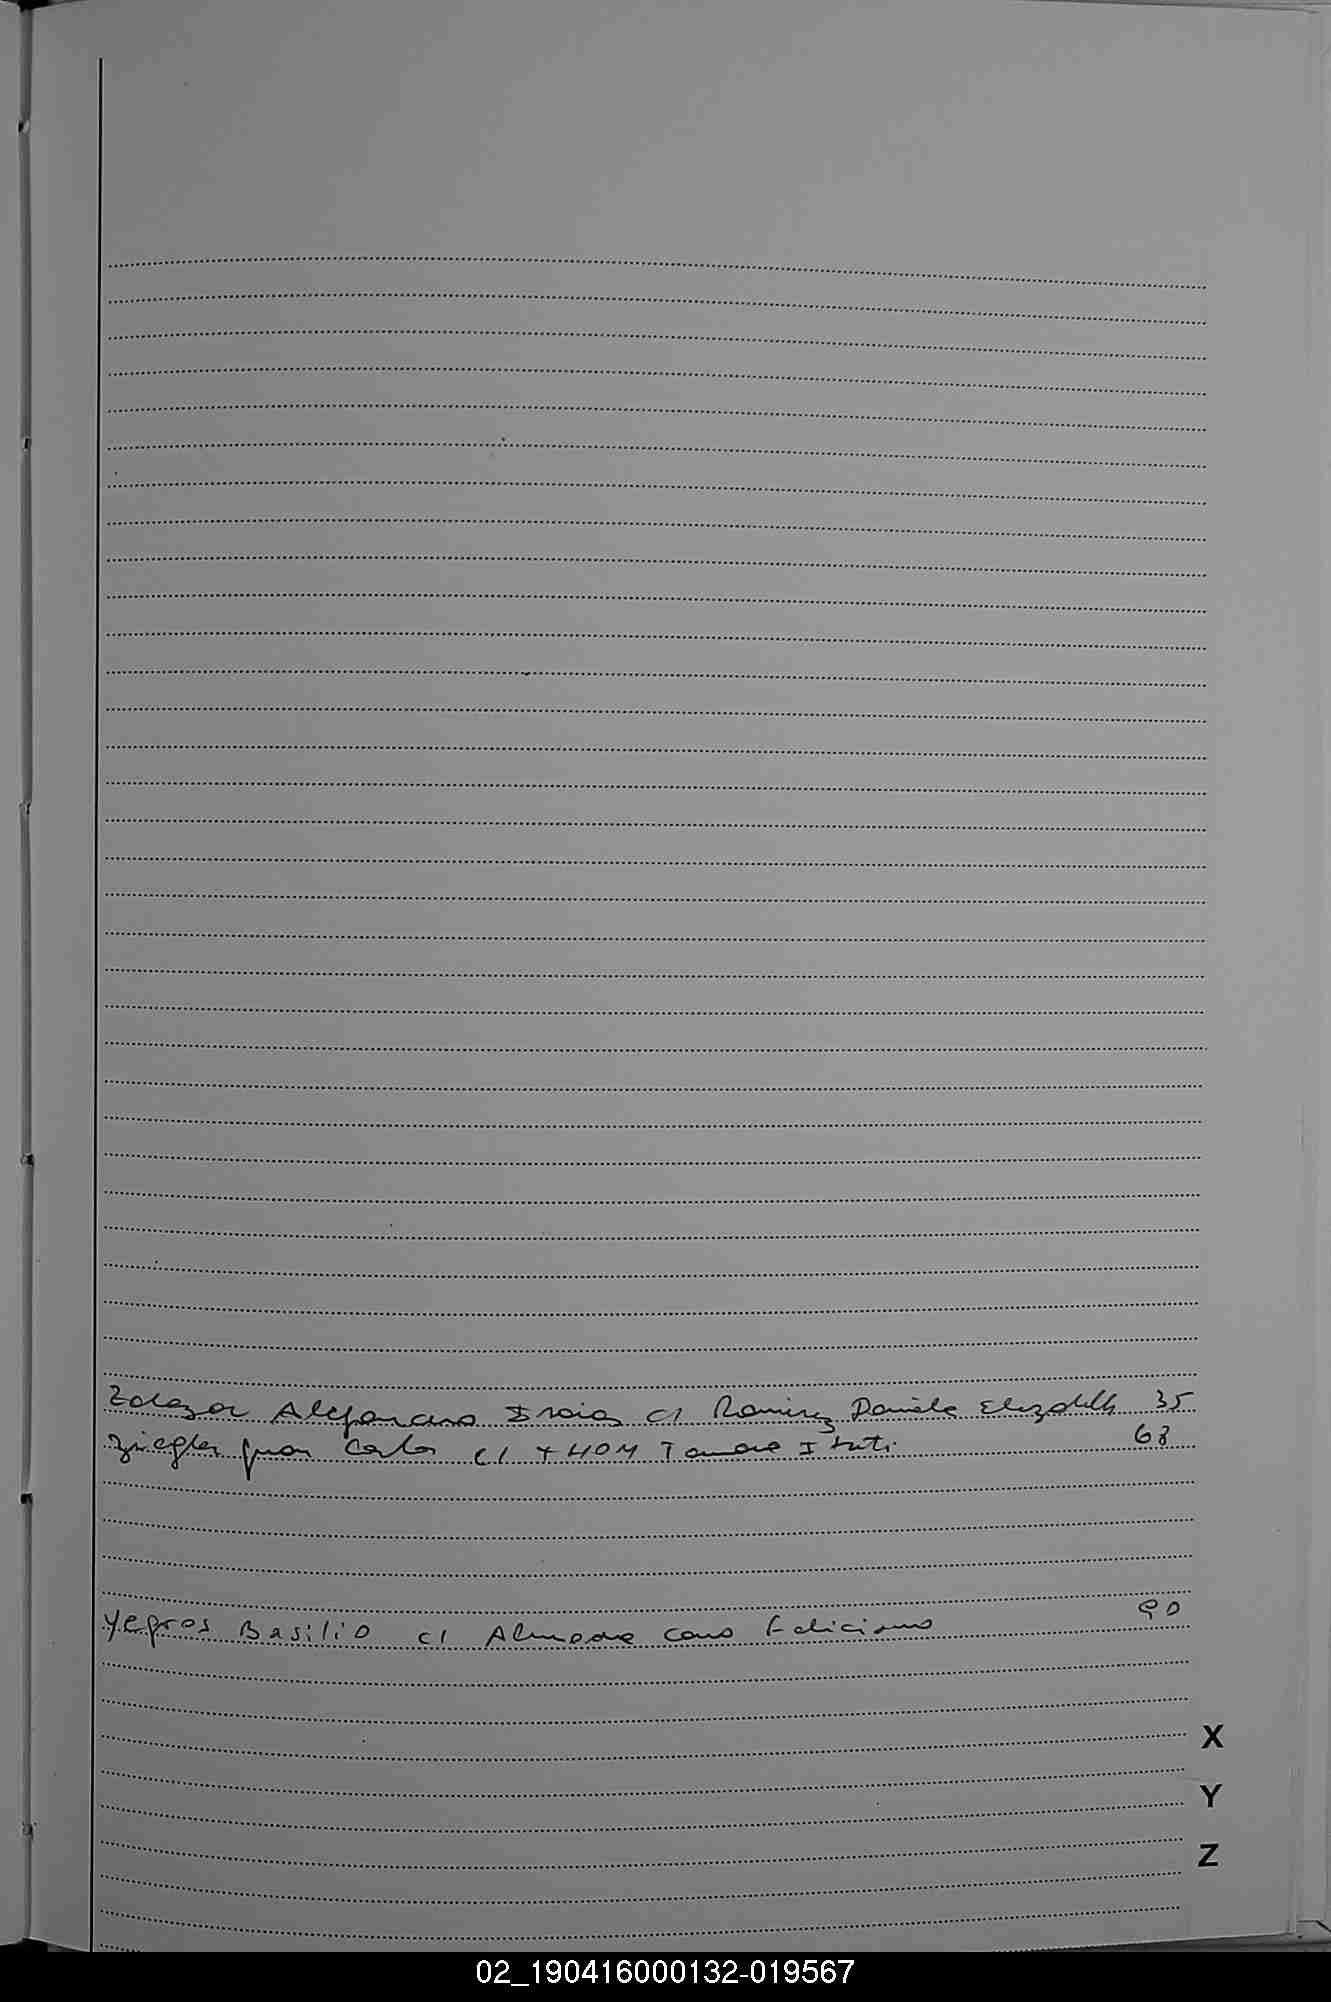 Zalazar Alejandro Isaias c/ Ramirez Daniela Elizabeth 35
Ziegler Juan Carlos c/ Tamara 63
Yegros Basilio c/ Almada Cano Feliciano 90
X
Y
Z
02_190416000132-019567